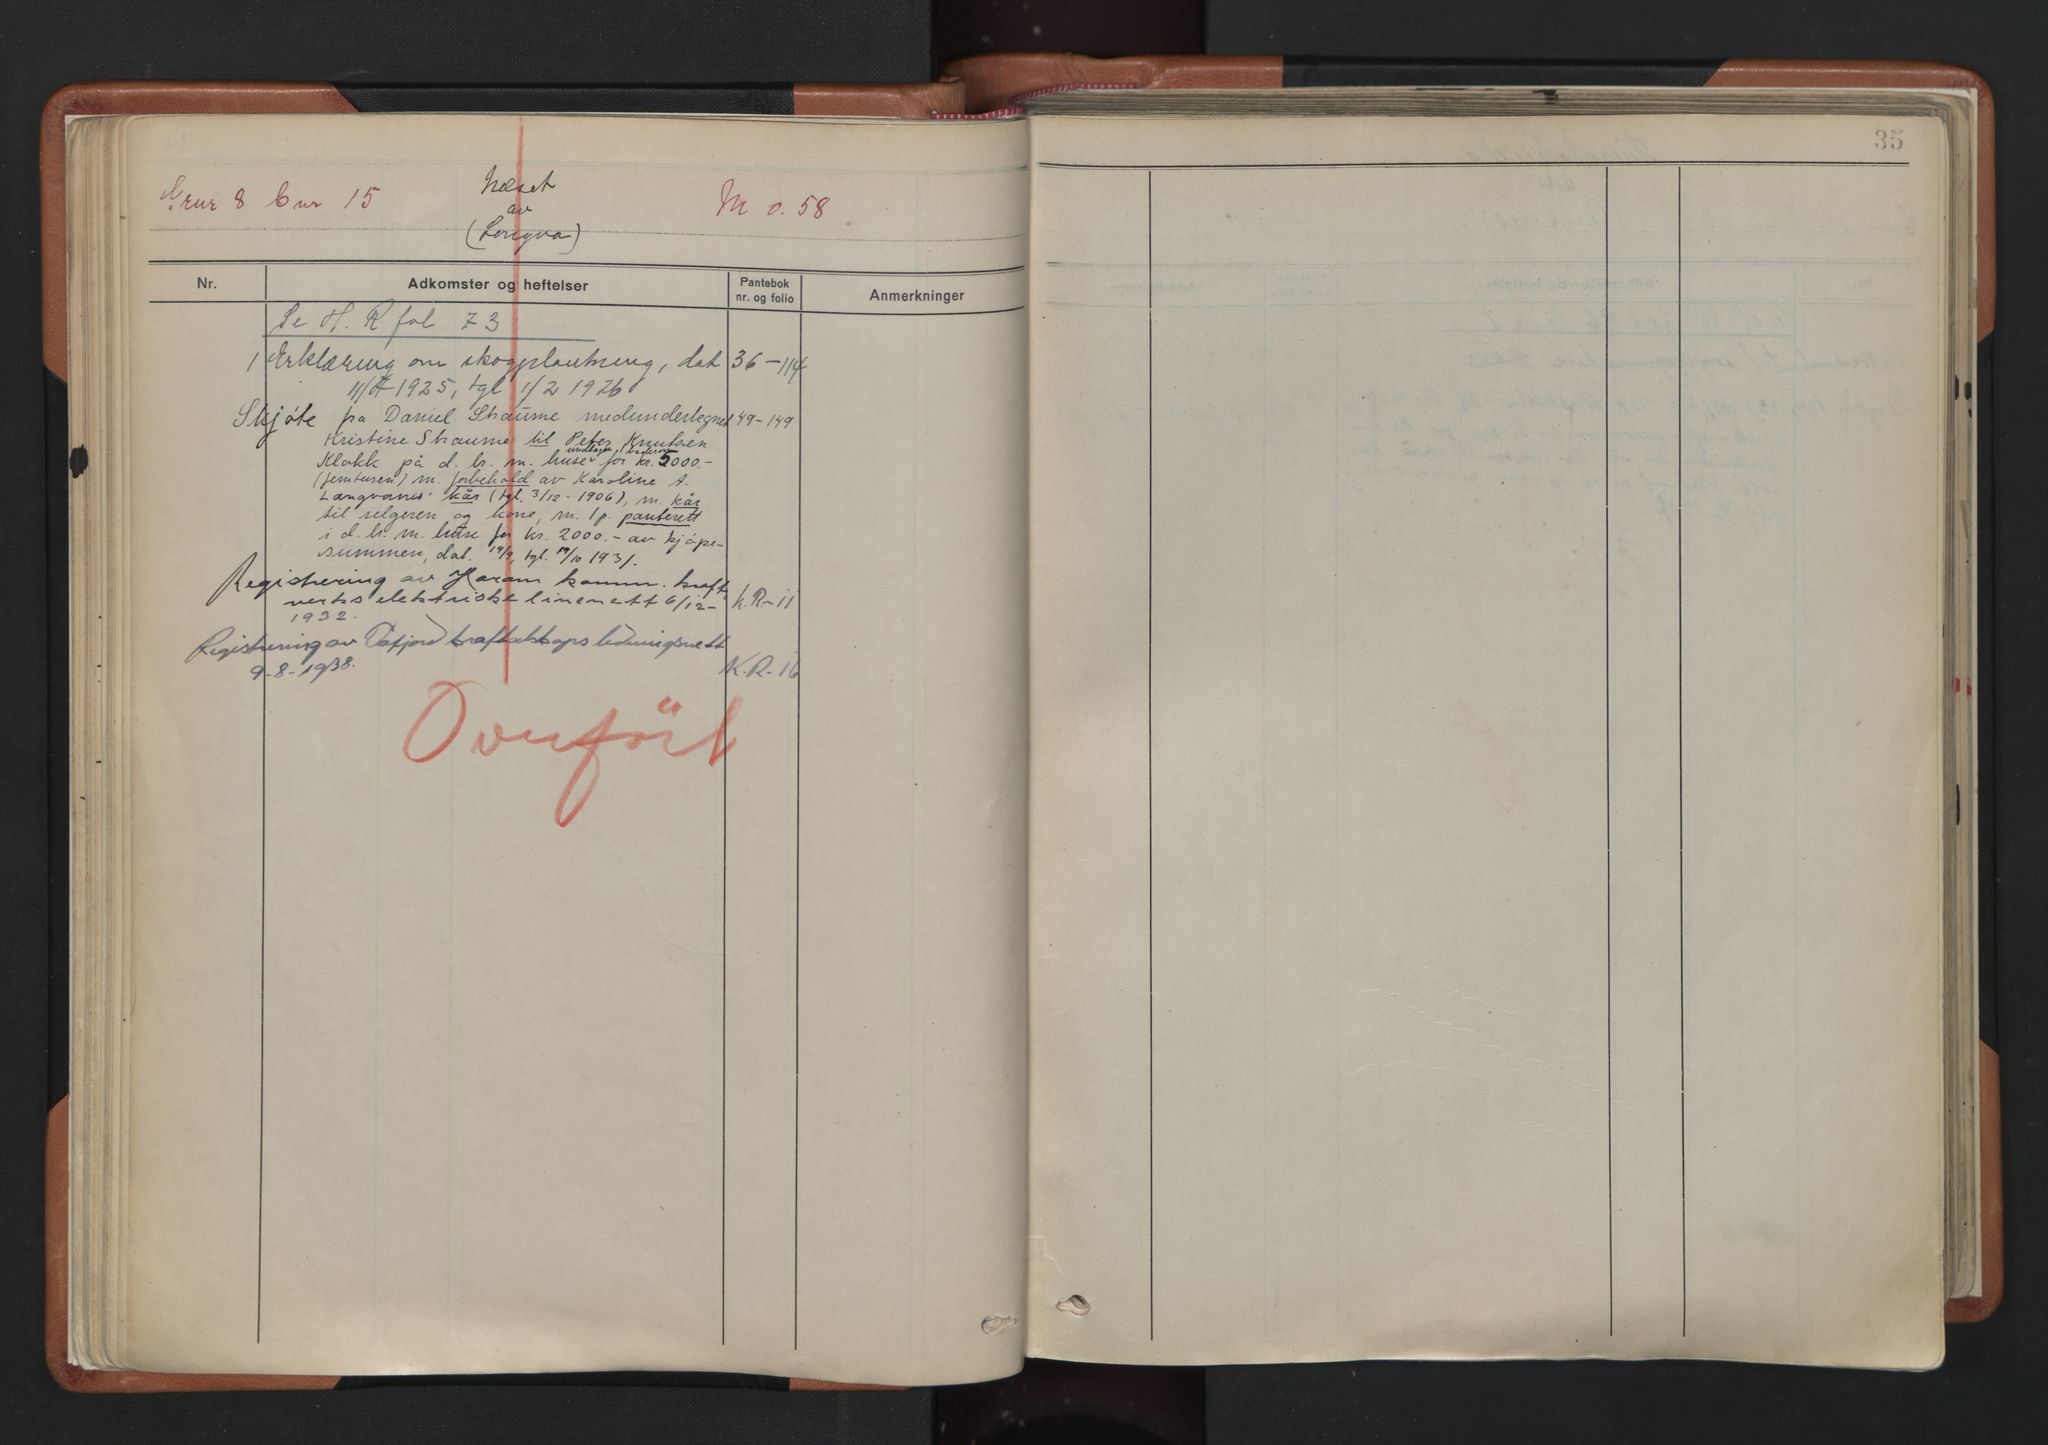 35
Gnr 8 Bnr 15
Næset
av
(Longva)
M 0.58
Nr.
Adkomster og heftelser
Pantebok
nr. og folio
Anmerkninger
Se H. R fol 73
1 Erklæring om skogplantning, dat 36-114
1925, tgl 1/2 1926
Skjöte fra Daniel Straume medundertegnet 49-149
Kristine Straume til Peter Knutsen
Klokk på d. br. m. huse for kr. 5000.-
(femtusen) m. forbehold av Karoline A.
Langvanes kår (tgl. 3/12-1906), m. kår
til selgeren og kone, m. 1 p. panterett
i d. br. m. huse for kr. 2000.- av kjöpe-
summen, dat. 19/9, tgl. 19/10 1931.
Registrering av Haram komm. kraft-
verks elektriske linenett 6/12- K.R-11
1932.
Registrering av Tafjord kraftselskaps ledningsnett
9-8-1938. K.R-16
Overfört